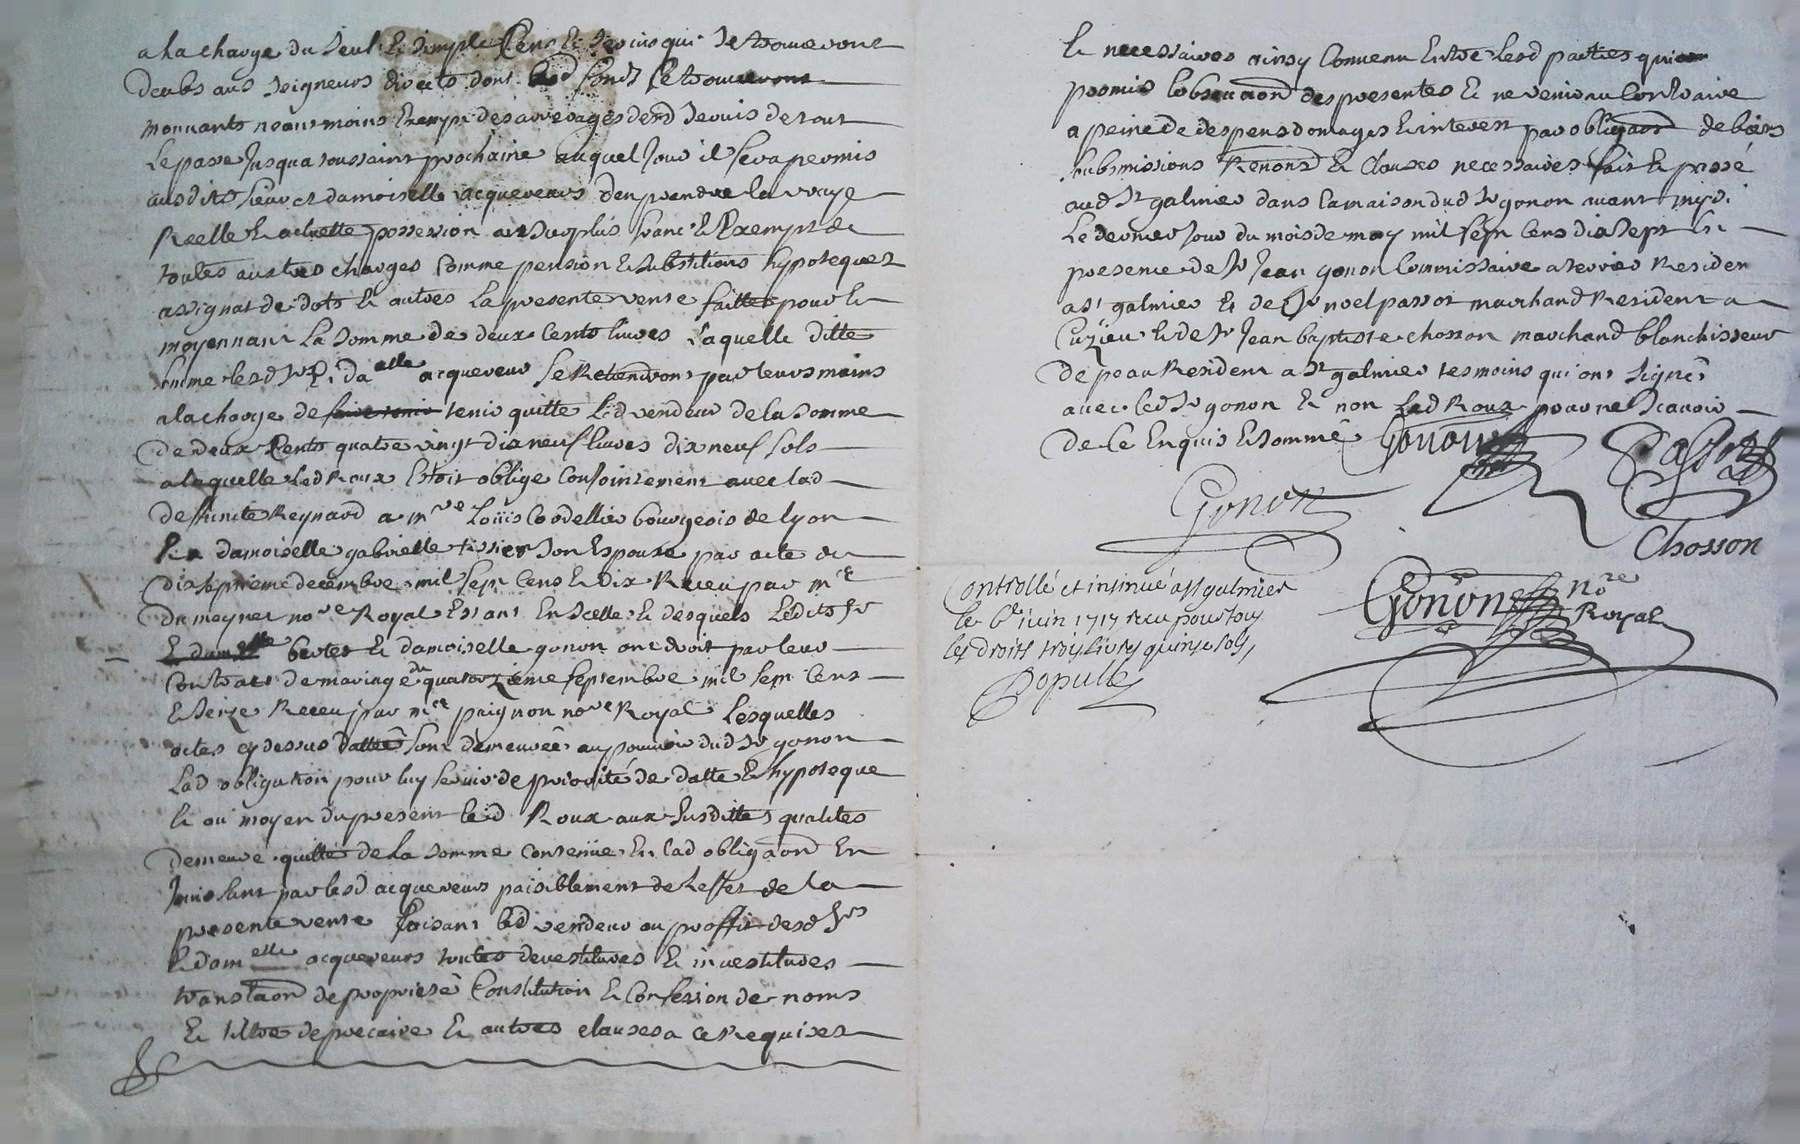 a la charge du seul & simple Cens & servis qui se trouveront
deubs aus seigneurs directs dont lesd fonds se trouveront
mouvants neantmoins Exempt des arrerages desd servis de tout
Le passe Jusqua toussaint prochaine auquel Jour il sera permis
ausdits sieur et damoiselle acquereurs den prendre la vraye
Reelle & actuelle possession au surplus franc & Exempt de
toutes autres charges comme pension & substitions hypoteques
assignat de dots & autres La presente vente faitte pour &
moyennant La somme de deux Cents livres Laquelle ditte
somme lesd sr & daelle acquereur se Retiendront par leurs mains
a la charge de faire tenir tenir quitte Led vendeur de la somme
de deux Cents quatre vingt dix neuf livres dix neuf sols
a laquelle Led Roux Estoit oblige Conjointement avec lad
deffuncte Reynard a mre Loüis Cordellier bourgeois de Lyon
& a damoiselle gabrielle tissier son Espouse par acte du
dixseptieme decembre mil sept Cens & dix Receu par mre
dumeynet nore Royal Estant En scelle & desquels Lesdits sr
& damelle bertet & damoiselle gonon ont droit par leur
Contract de mariage du quatorzieme septembre mil sept Cens
& seize Receu par mre paignon nore Royal Lesquelles
actes cy dessus datteé sont demeureé au pouvoir dud sr gonon
Lad obligation pour luy servir de priorité de datte & hypoteque
& au moyen du present led Roux aux susdittes qualites
demeure quitte de La somme contenüe En lad obligaon En
Jouissant par lesd acquereurs paisiblement de Leffet de la
presente vente faisant led vendeur au proffit desd srs
& damelle acquereurs toutes devestitures & investitures
translaon de proprieté Constitution & Confession de noms
& tiltre de precaire & autres clauses a ce Requises
& necessaires ainsy Convenu Entre Lesd parties qui ont
promis Lobservaon des presentes & ne venir au Contraire
a peine de despens domages & interest par obligaon de biens
submissions Renons & Clauses necessaires fait & passé
aud st galmier dans La maison dud sr gonon avant midi
Le dernier Jour du mois de may mil sept Cens dix sept En
presence de sr Jean gonon Commissaire a terrier Resident
a st galmier & de sr noel passot marchand Resident a
Cuzieu & de sr Jean baptiste chosson marchand blanchisseur
de peau Resident a st galmier tesmoins qui ont signé
avec led sr gonon & non Led Roux pour ne scavoir
de ce Enquis & sommé Gonon Passot
Gonon
Chosson
Controllé et insinué a st galmier
le 6e iuin 1717 receu pour tous
les droits trois livres quinze sols
Populle
Gonon nore
Royal